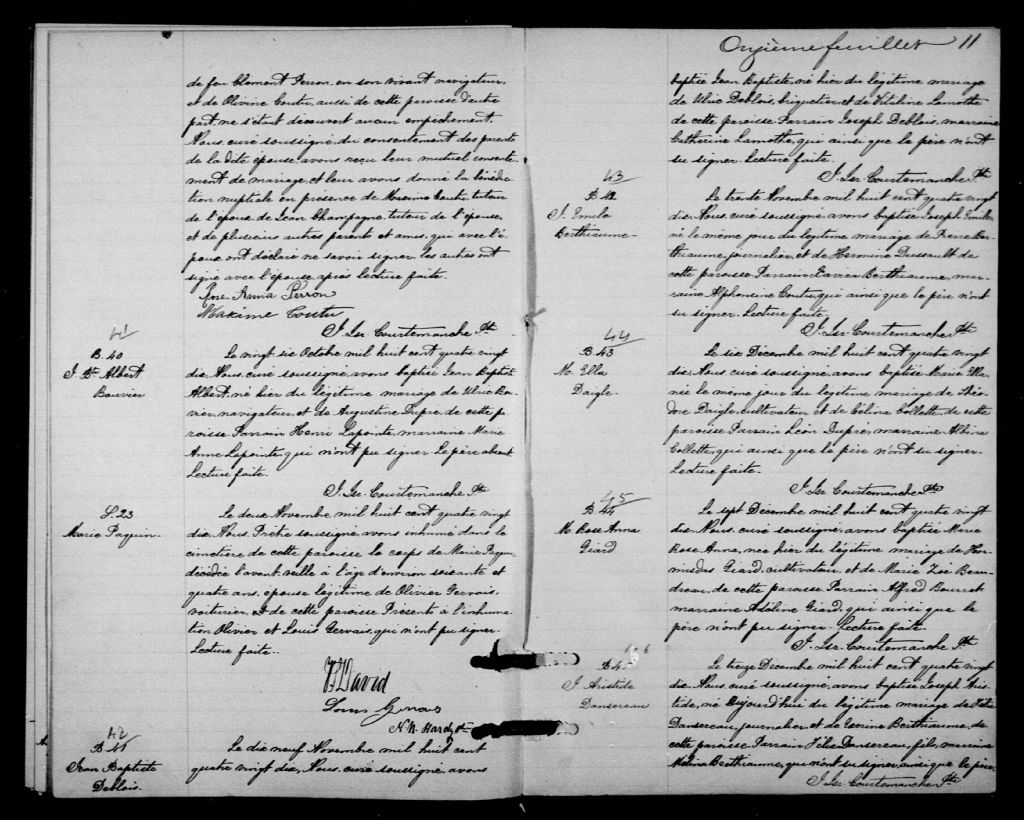 de feu Clement Perron, en son vivant navigateur,
et de Olivine Coutu, aussi de cette paroisse d'autre
part, ne s'étant découvert aucun empêchement,
Nous, curé soussigné, du consentement des parents
de la dite épouse, avons reçu leur mutuel consente-
ment de mariage, et leur avons donné la bénédic-
tion nuptiale en présence de Maxime Coutu, tuteur
de l'époux, de Jean Champagne, tuteur de l'épouse,
et de plusieurs autres parents et amis, qui avec l'é-
poux ont déclaré ne savoir signer, les autres ont
signé avec l'épouse après lecture faite.
Rose Anna Perron
Maxime Coutu
J. Isr. Courtemanche Ptr
41
B. 40
J. Bte Albert
Bouvier
Le vingt six Octobre mil huit cent quatre vingt
dix, Nous, curé soussigné, avons baptisé Jean Baptiste
Albert, né hier du légitime mariage de Ulric Bou-
vier, navigateur, et de Augustine Dupré, de cette pa-
roisse. Parrain Henri Lapointe, marraine Marie
Anne Lapointe, qui n'ont pu signer. Le père absent.
Lecture faite.
J. Isr. Courtemanche Ptr
S. 23
Marie Paquin
Le deux Novembre mil huit cent quatre vingt
dix, Nous, Prêtre soussigné, avons inhumé dans le
cimetière de cette paroisse le corps de Marie Paquin
décédée l'avant veille à l'âge d'environ soixante et
quatre ans, épouse légitime de Olivier Gervais,
voiturier, et de cette paroisse. Présents à l'inhuma-
tion Olivier et Louis Gervais, qui n'ont pu signer.
Lecture faite.
David
Louis Gervais
N. H. Hardy Ptr
42
B. 41
Jean Baptiste
Deblois
Le dix neuf Novembre mil huit cent
quatre vingt dix, Nous, curé soussigné, avons
Onzième feuillet 11
baptisé Jean Baptiste, né hier du légitime mariage
de Ulric Deblois, briquetier, et de Vitaline Lamothe
de cette paroisse. Parrain Joseph Deblois, marraine
Catherine Lamothe, qui ainsi que le père n'ont
su signer. Lecture faite.
J. Isr. Courtemanche Ptr
43
B. 42
J. Emile
Berthiaume
Le trente Novembre mil huit cent quatre vingt
dix, Nous, curé soussigné, avons baptisé Joseph Emile,
né le même jour du légitime mariage de Pierre Ber-
thiaume, journalier, et de Hermine Dussault de
cette paroisse. Parrain Xavier Berthiaume, mar-
raine Alphonsine Coutu, qui ainsi que le père n'ont
su signer. Lecture faite.
J. Isr. Courtemanche Ptr
44
B. 43
M. Ella
Daigle
Le six Décembre mil huit cent quatre vingt
dix, Nous, curé soussigné, avons baptisé Marie Ella
née le même jour du légitime mariage de Théo-
dore Daigle, cultivateur et de Célina Collette, de cette
paroisse. Parrain Léon Dupré, marraine Albina
Collette, qui ainsi que le père n'ont su signer.
Lecture faite.
J. Isr. Courtemanche Ptr
45
B. 44
M. Rose Anna
Giard
Le sept Décembre mil huit cent quatre vingt
dix, Nous, curé soussigné, avons baptisé Marie
Rose Anna, née hier du légitime mariage de Hor-
misdas Giard, cultivateur, et de Marie Zoé Beau-
dreau, de cette paroisse. Parrain Alfred Bourret
marraine Adéline Giard, qui ainsi que le
père n'ont pu signer. Lecture faite.
J. Isr. Courtemanche Ptr
B. 45
J. Aristide
Dansereau
Le treize Décembre mil huit cent quatre vingt
dix, Nous, curé soussigné, avons baptisé Joseph Aris-
tide, né aujourd'hui du légitime mariage de Félix
Dansereau, journalier et de Berthiaume, de
cette paroisse. Parrain Félix Dansereau, fils, marraine
Mélina Berthiaume, qui n'ont su signer, ainsi que le père.
J. Isr. Courtemanche Ptr